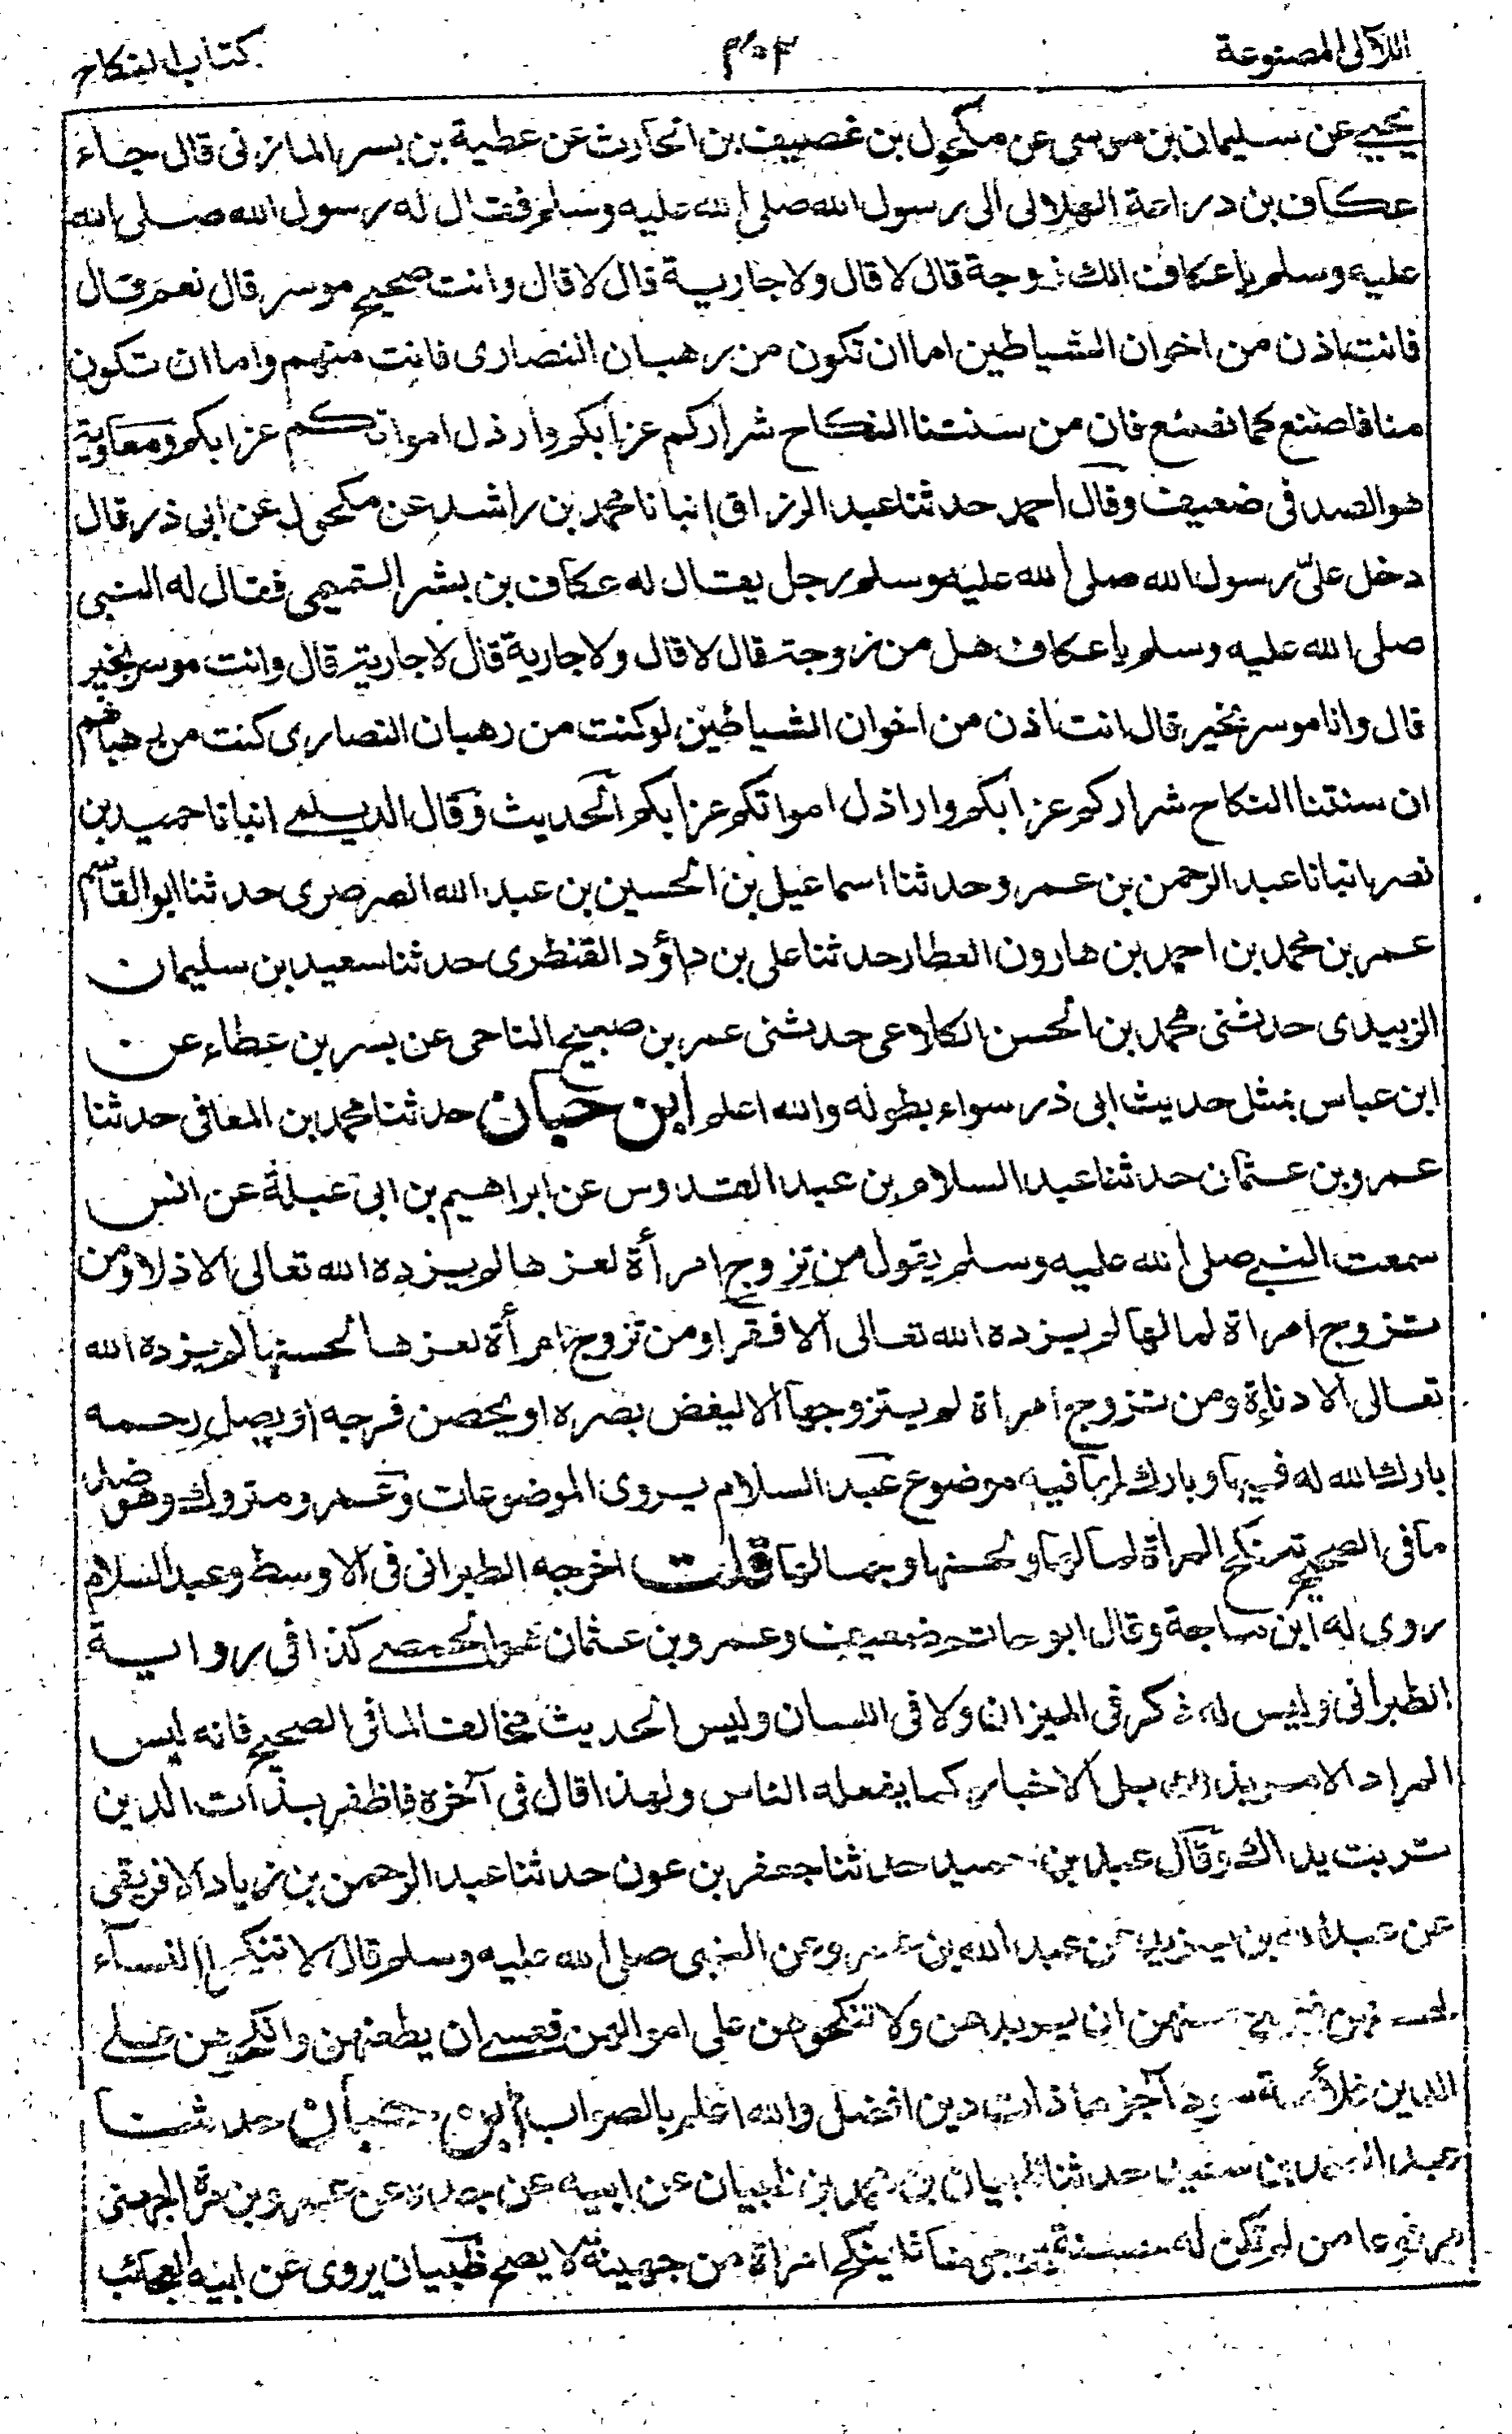 اللآلى المصنوعة
٤٠٣
كتاب النكاح
يحيى عن سليمان بن موسى عن مكحول بن غصيف بن الحارث عن عطية بن بسر المازنى قال جاء
عكاف بن دراعة الهلالى الى رسول الله صلى الله عليه وسلم فقال له رسول الله صلى الله
عليه وسلم يا عكاف الك زوجة قال لا قال ولا جارية قال لا قال وانت صحيح موسر قال نعم قال
فانت اذن من اخوان الشياطين اما ان تكون من رهبان النصارى فانت منهم واما ان تكون
منا فاصنع كما نصنع فان من سنتنا النكاح شراركم عزابكم وارذل امواتكم عزابكم ومعاوية
هو الصدفى ضعيف وقال احمد حدثنا عبد الرزاق انبانا محمد بن راشد عن مكحول عن ابى ذر قال
دخل على رسول الله صلى الله عليه وسلم رجل يقال له عكاف بن بشر التميمى فقال له النبى
صلى الله عليه وسلم يا عكاف هل من زوجة قال لا قال ولا جارية قال لا جارية قال وانت موسر بخير
قال وانا موسر بخير قال انت اذن من اخوان الشياطين لو كنت من رهبان النصارى كنت من رهبانهم
ان سنتنا النكاح شراركم عزابكم واراذل امواتكم عزابكم الحديث وقال الديلمى انبانا حميد بن
نصر انبانا عبد الرحمن بن عمر وحدثنا اسماعيل بن الحسين بن عبد الله الصرصرى حدثنا ابو القاسم
عمر بن محمد بن احمد بن هارون العطار حدثنا على بن داؤد القنطرى حدثنا سعيد بن سليمان
الزبيدى حدثنى محمد بن الحسن الكلاعى حدثنى عمر بن صبيح التاحى عن بسر بن عطاء عن
ابن عباس بمثل حديث ابى ذر سواء بطوله والله اعلم ابن حبان حدثنا محمد بن المعافى حدثنا
عمرو بن عثمان حدثنا عبد السلام بن عبد القدوس عن ابراهيم بن ابى عبلة عن انس
سمعت النبى صلى الله عليه وسلم يقول من تزوج امرأة لعزها لم يزده الله تعالى الا ذلا ومن
تزوج امراة لمالها لم يزده الله تعالى الا فقرا ومن تزوج امرأة لعزها لحسنها لم يزده الله
تعالى الا دناءة ومن تزوج امراة لم يتزوجها الا ليغض بصره او يحصن فرجه او يصل رحمه
بارك الله له فيها وبارك لها فيه موضوع عبد السلام يروى الموضوعات وعمرو متروك وهو ضد
ما فى الصحيح تنكح المراة لمالها ولحسنها وجمالها قلت اخرجه الطبرانى فى الاوسط وعبد السلام
روى له ابن ماجة وقال ابو حاتم ضعيف وعمرو بن عثمان هو الحمصى كذا فى رواية
الطبرانى وليس له ذكر فى الميزان ولا فى اللسان وليس الحديث مخالفا لما فى الصحيح فانه ليس
المراد الامر بذلك بل الاخبار كما يفعله الناس ولهذا قال فى آخره فاظفر بذات الدين
تربت يداك وقال عبد بن حميد حدثنا جعفر بن عون حدثنا عبد الرحمن بن زياد الافريقى
عن عبد الله بن يزيد عن عبد الله بن عمرو عن النبى صلى الله عليه وسلم قال لا تنكحوا النساء
لحسنهن فعسى حسنهن ان يرديهن ولا تنكحوهن على اموالهن فعسى ان يطغيهن وانكحوهن على
الدين فلأمة سوداء خرماء ذات دين افضل والله اعلم بالصواب ابن حبان حدثنا
حدثنا ظبيان بن محمد بن ظبيان عن ابيه عن جده عن عمرو بن مرة الجهنى
مرفوعا من لم تكن له حسنة يرجى بها فلينكح امراة من جهينة لا يصح ظبيان يروى عن ابيه العجائب